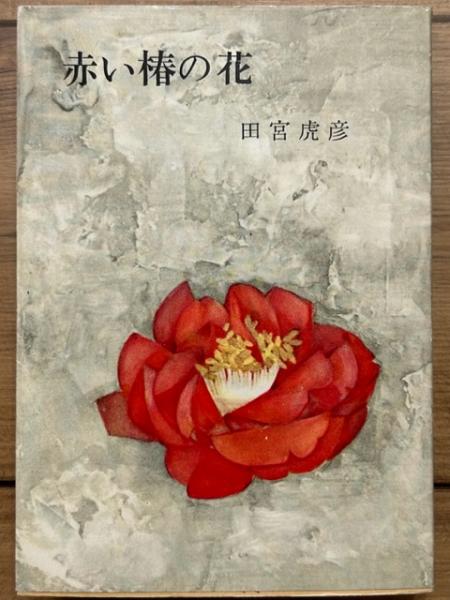 赤い椿の花
田宮虎彦